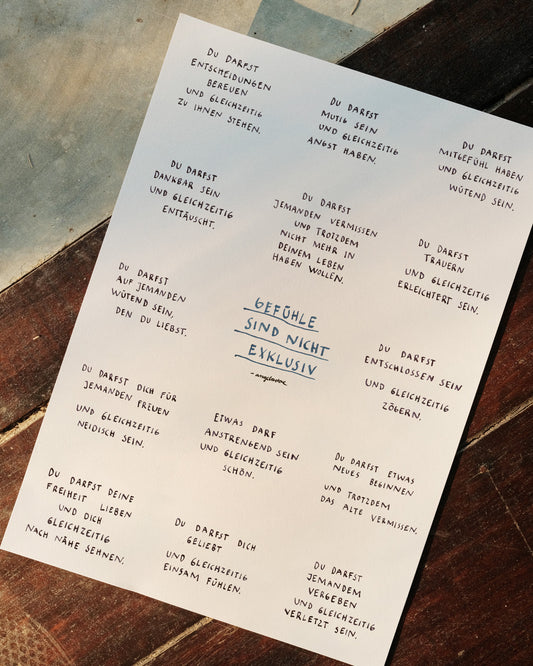 DU DARFST
ENTSCHEIDUNGEN
BEREUEN
UND GLEICHZEITIG
ZU IHNEN STEHEN.
DU DARFST
MUTIG SEIN
UND GLEICHZEITIG
ANGST HABEN.
DU DARFST
MITGEFÜHL HABEN
UND GLEICHZEITIG
WÜTEND SEIN.
DU DARFST
DANKBAR SEIN
UND GLEICHZEITIG
ENTTÄUSCHT.
DU DARFST
JEMANDEN VERMISSEN
UND TROTZDEM
NICHT MEHR IN
DEINEM LEBEN
HABEN WOLLEN.
DU DARFST
TRAUERN
UND GLEICHZEITIG
ERLEICHTERT SEIN.
DU DARFST
AUF JEMANDEN
WÜTEND SEIN,
DEN DU LIEBST.
GEFÜHLE
SIND NICHT
EXKLUSIV
DU DARFST
ENTSCHLOSSEN SEIN
UND GLEICHZEITIG
ZÖGERN.
DU DARFST DICH FÜR
JEMANDEN FREUEN
UND GLEICHZEITIG
NEIDISCH SEIN.
ETWAS DARF
ANSTRENGEND SEIN
UND GLEICHZEITIG
SCHÖN.
DU DARFST ETWAS
NEUES BEGINNEN
UND TROTZDEM
DAS ALTE VERMISSEN.
DU DARFST DEINE
FREIHEIT LIEBEN
UND DICH
GLEICHZEITIG
NACH NÄHE SEHNEN.
DU DARFST DICH
GELIEBT
UND GLEICHZEITIG
EINSAM FÜHLEN.
DU DARFST
JEMANDEM
VERGEBEN
UND GLEICHZEITIG
VERLETZT SEIN.